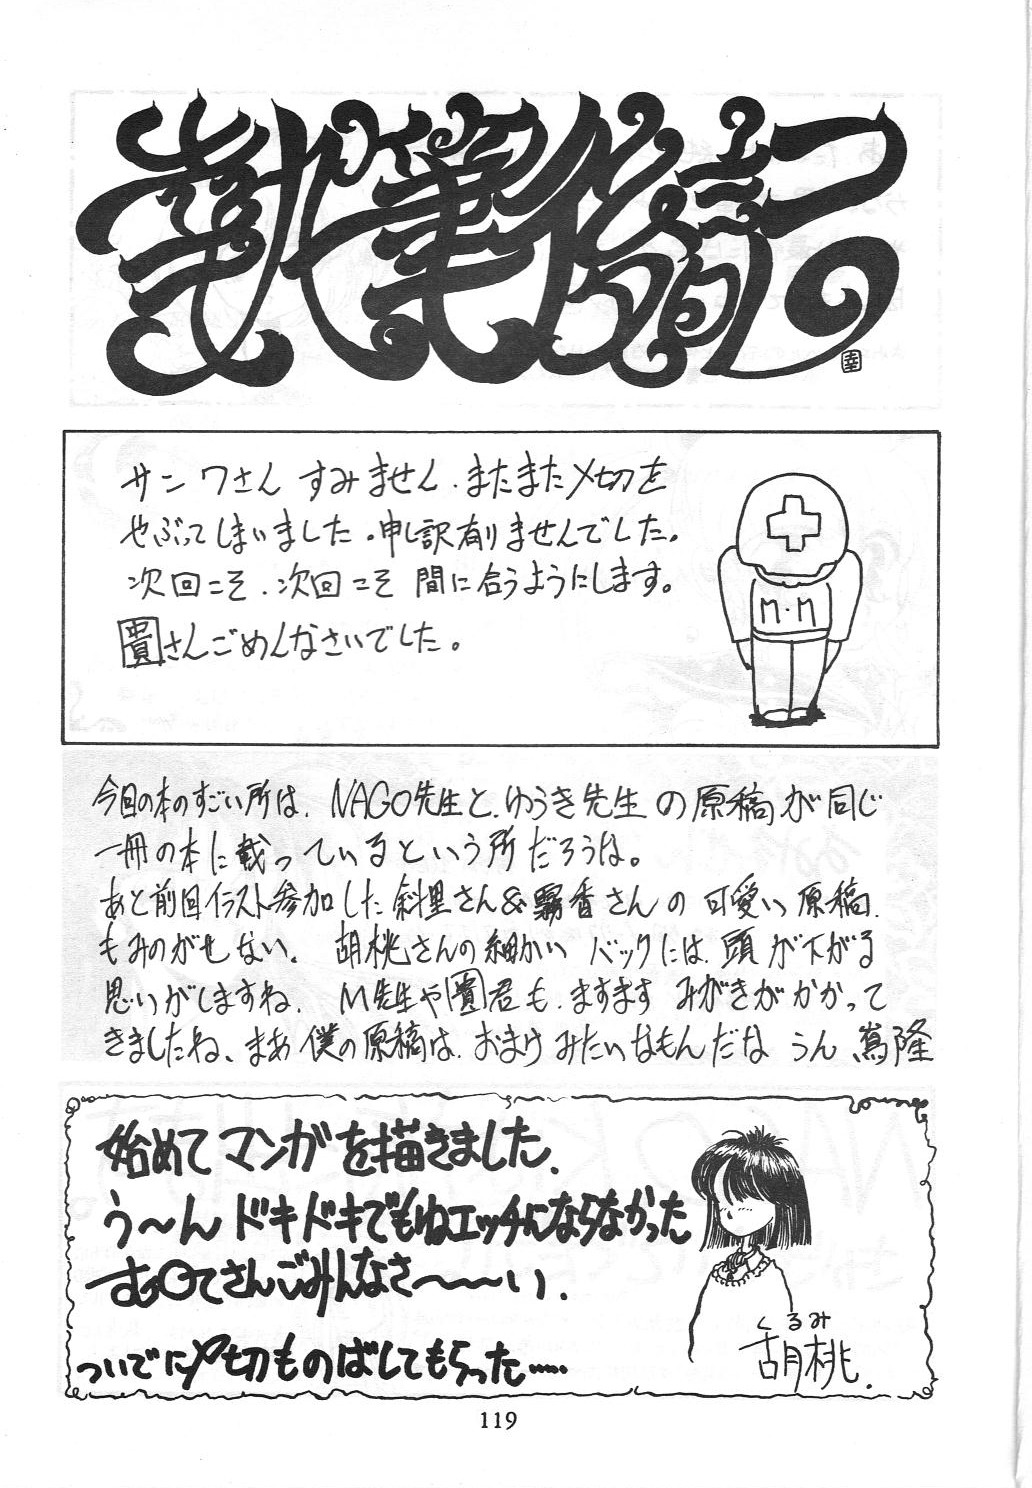 執筆後記
幸
サンワさん すみません.またまた〆切を
やぶってしまいました。申し訳有りませんでした。
次回こそ.次回こそ 間に合うようにします。
貴さんごめんなさいでした。
M・M
今回の本のすごい所は、NAGO先生と、ゆうき先生の原稿が同じ
一冊の本に載っているという所だろうな。
あと前回イラスト参加した斜里さん&霧香さんの可愛い原稿、
ものがせない。胡桃さんの細かいバックには、頭が下がる
思いがしますね、M先生や貴君も、ますますみがきがかかって
きましたね、まあ僕の原稿は、おまけみたいなもんだな うん 嵩隆
始めてマンガを描きました、
う〜ん ドキドキでもねエッチにならなかった
さんごみんなさ〜〜〜い、
ついでに〆切ものばしてもらった……
くるみ
胡桃.
119